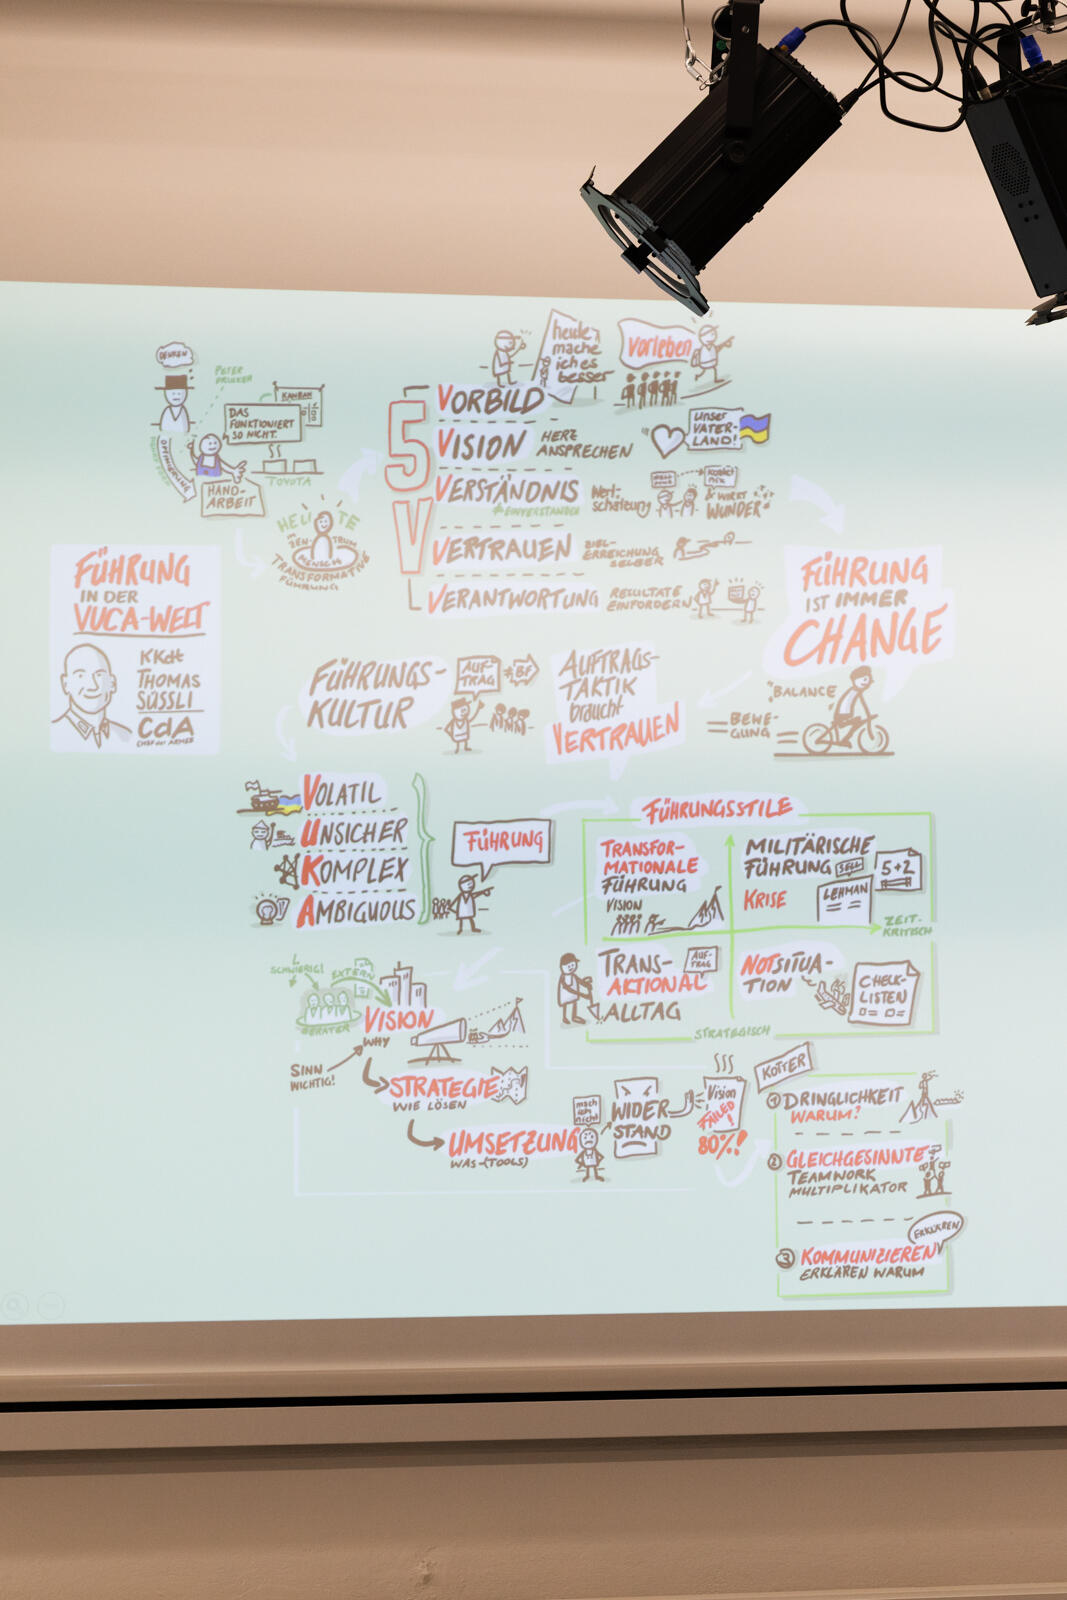 FÜHRUNG
IN DER
VUCA-WELT
KKdt
THOMAS
SÜSSLI
CdA
CHEF DER ARMEE
DENKEN
PETER
DRUCKER
KANBAN
DAS
FUNKTIONIERT
SO NICHT.
OPTIMIERUNG
HAND-
ARBEIT
TOYOTA
HEUTE
IM ZENTRUM
MENSCH
TRANSFORMATIVE
FÜHRUNG
5
V
heute
mache
ich es
besser
vorleben
VORBILD
VISION
HERZ
ANSPRECHEN
unser
VATER-
LAND!
VERSTÄNDNIS
≠ EINVERSTANDEN
Wert-
schätzung
& WIRKT
WUNDER
VERTRAUEN
ZIEL-
ERREICHUNG
SELBER
VERANTWORTUNG
RESULTATE
EINFORDERN
FÜHRUNG
IST IMMER
CHANGE
BALANCE
= BEWE-
GUNG
FÜHRUNGS-
KULTUR
AUF-
TRAG
≠ BF
AUFTRAGS-
TAKTIK
braucht
VERTRAUEN
VOLATIL
UNSICHER
KOMPLEX
AMBIGUOUS
FÜHRUNG
FÜHRUNGSSTILE
TRANSFOR-
MATIONALE
FÜHRUNG
VISION
MILITÄRISCHE
FÜHRUNG
KRISE
SELL
LEHMAN
5+2
ZEIT-
KRITISCH
TRANS-
AKTIONAL
ALLTAG
AUF-
TRAG
NOTSITUA-
TION
CHECK-
LISTEN
STRATEGISCH
SCHWIERIG!
EXTERN
BERATER
VISION
WHY
SINN
WICHTIG!
STRATEGIE
WIE LÖSEN
UMSETZUNG
WAS (TOOLS)
mach
ich
nicht
WIDER
STAND
Vision
FAILED!
80%!
KOTTER
1 DRINGLICHKEIT
WARUM?
2 GLEICHGESINNTE
TEAMWORK
MULTIPLIKATOR
ERKLÄREN
3 KOMMUNIZIEREN
ERKLÄREN WARUM